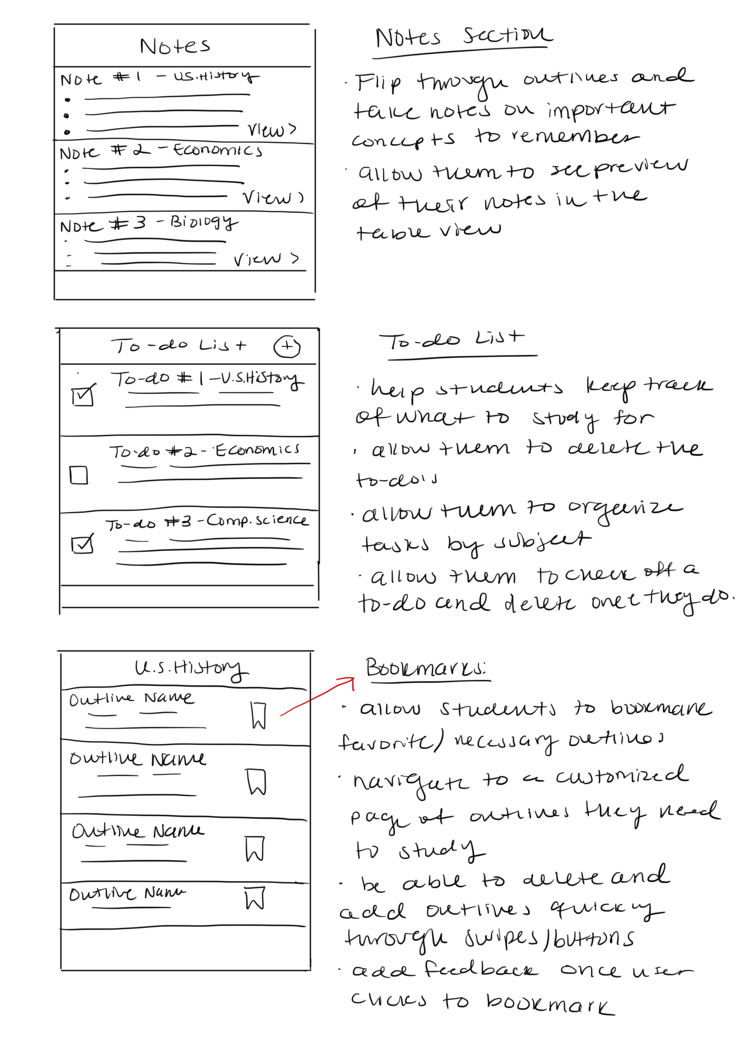 Notes
Note #1 - U.S. History
View >
Note #2 - Economics
View >
Note #3 - Biology
View >
Notes Section
· Flip through outlines and
take notes on important
concepts to remember
· allow them to see preview
of their notes in the
table view
To-do List +
To-do #1 - U.S. History
To-do #2 - Economics
To-do #3 - Comp. science
To-do List
· help students keep track
of what to study for
· allow them to delete the
to-do's
· allow them to organize
tasks by subject
· allow them to check off a
to-do and delete once they do.
U.S. History
Outline Name
Outline Name
Outline Name
Outline Name
Bookmarks:
· allow students to bookmark
favorite/necessary outlines
· navigate to a customized
page of outlines they need
to study
· be able to delete and
add outlines quickly
through swipes/buttons
· add feedback once user
clicks to bookmark